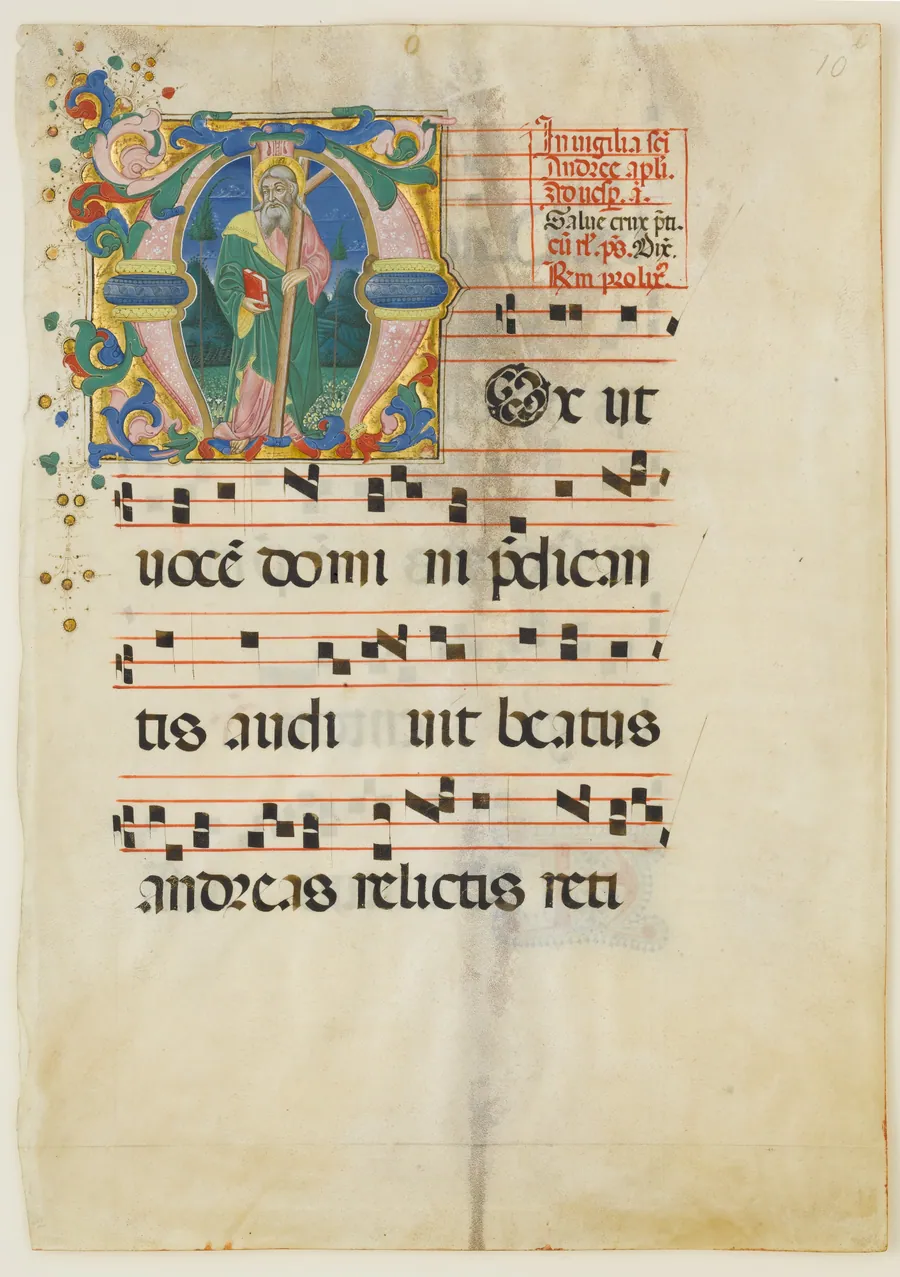 10
In uigilia sci
Andree apli.
Ad uesp̄. i.
Salue crux p̄ti.
cū rl'. ps̄. Dix̄.
Rm prolix̄.
Ox ut
uocē domi ni p̄dican
tis audi uit beatus
andreas relictis reti